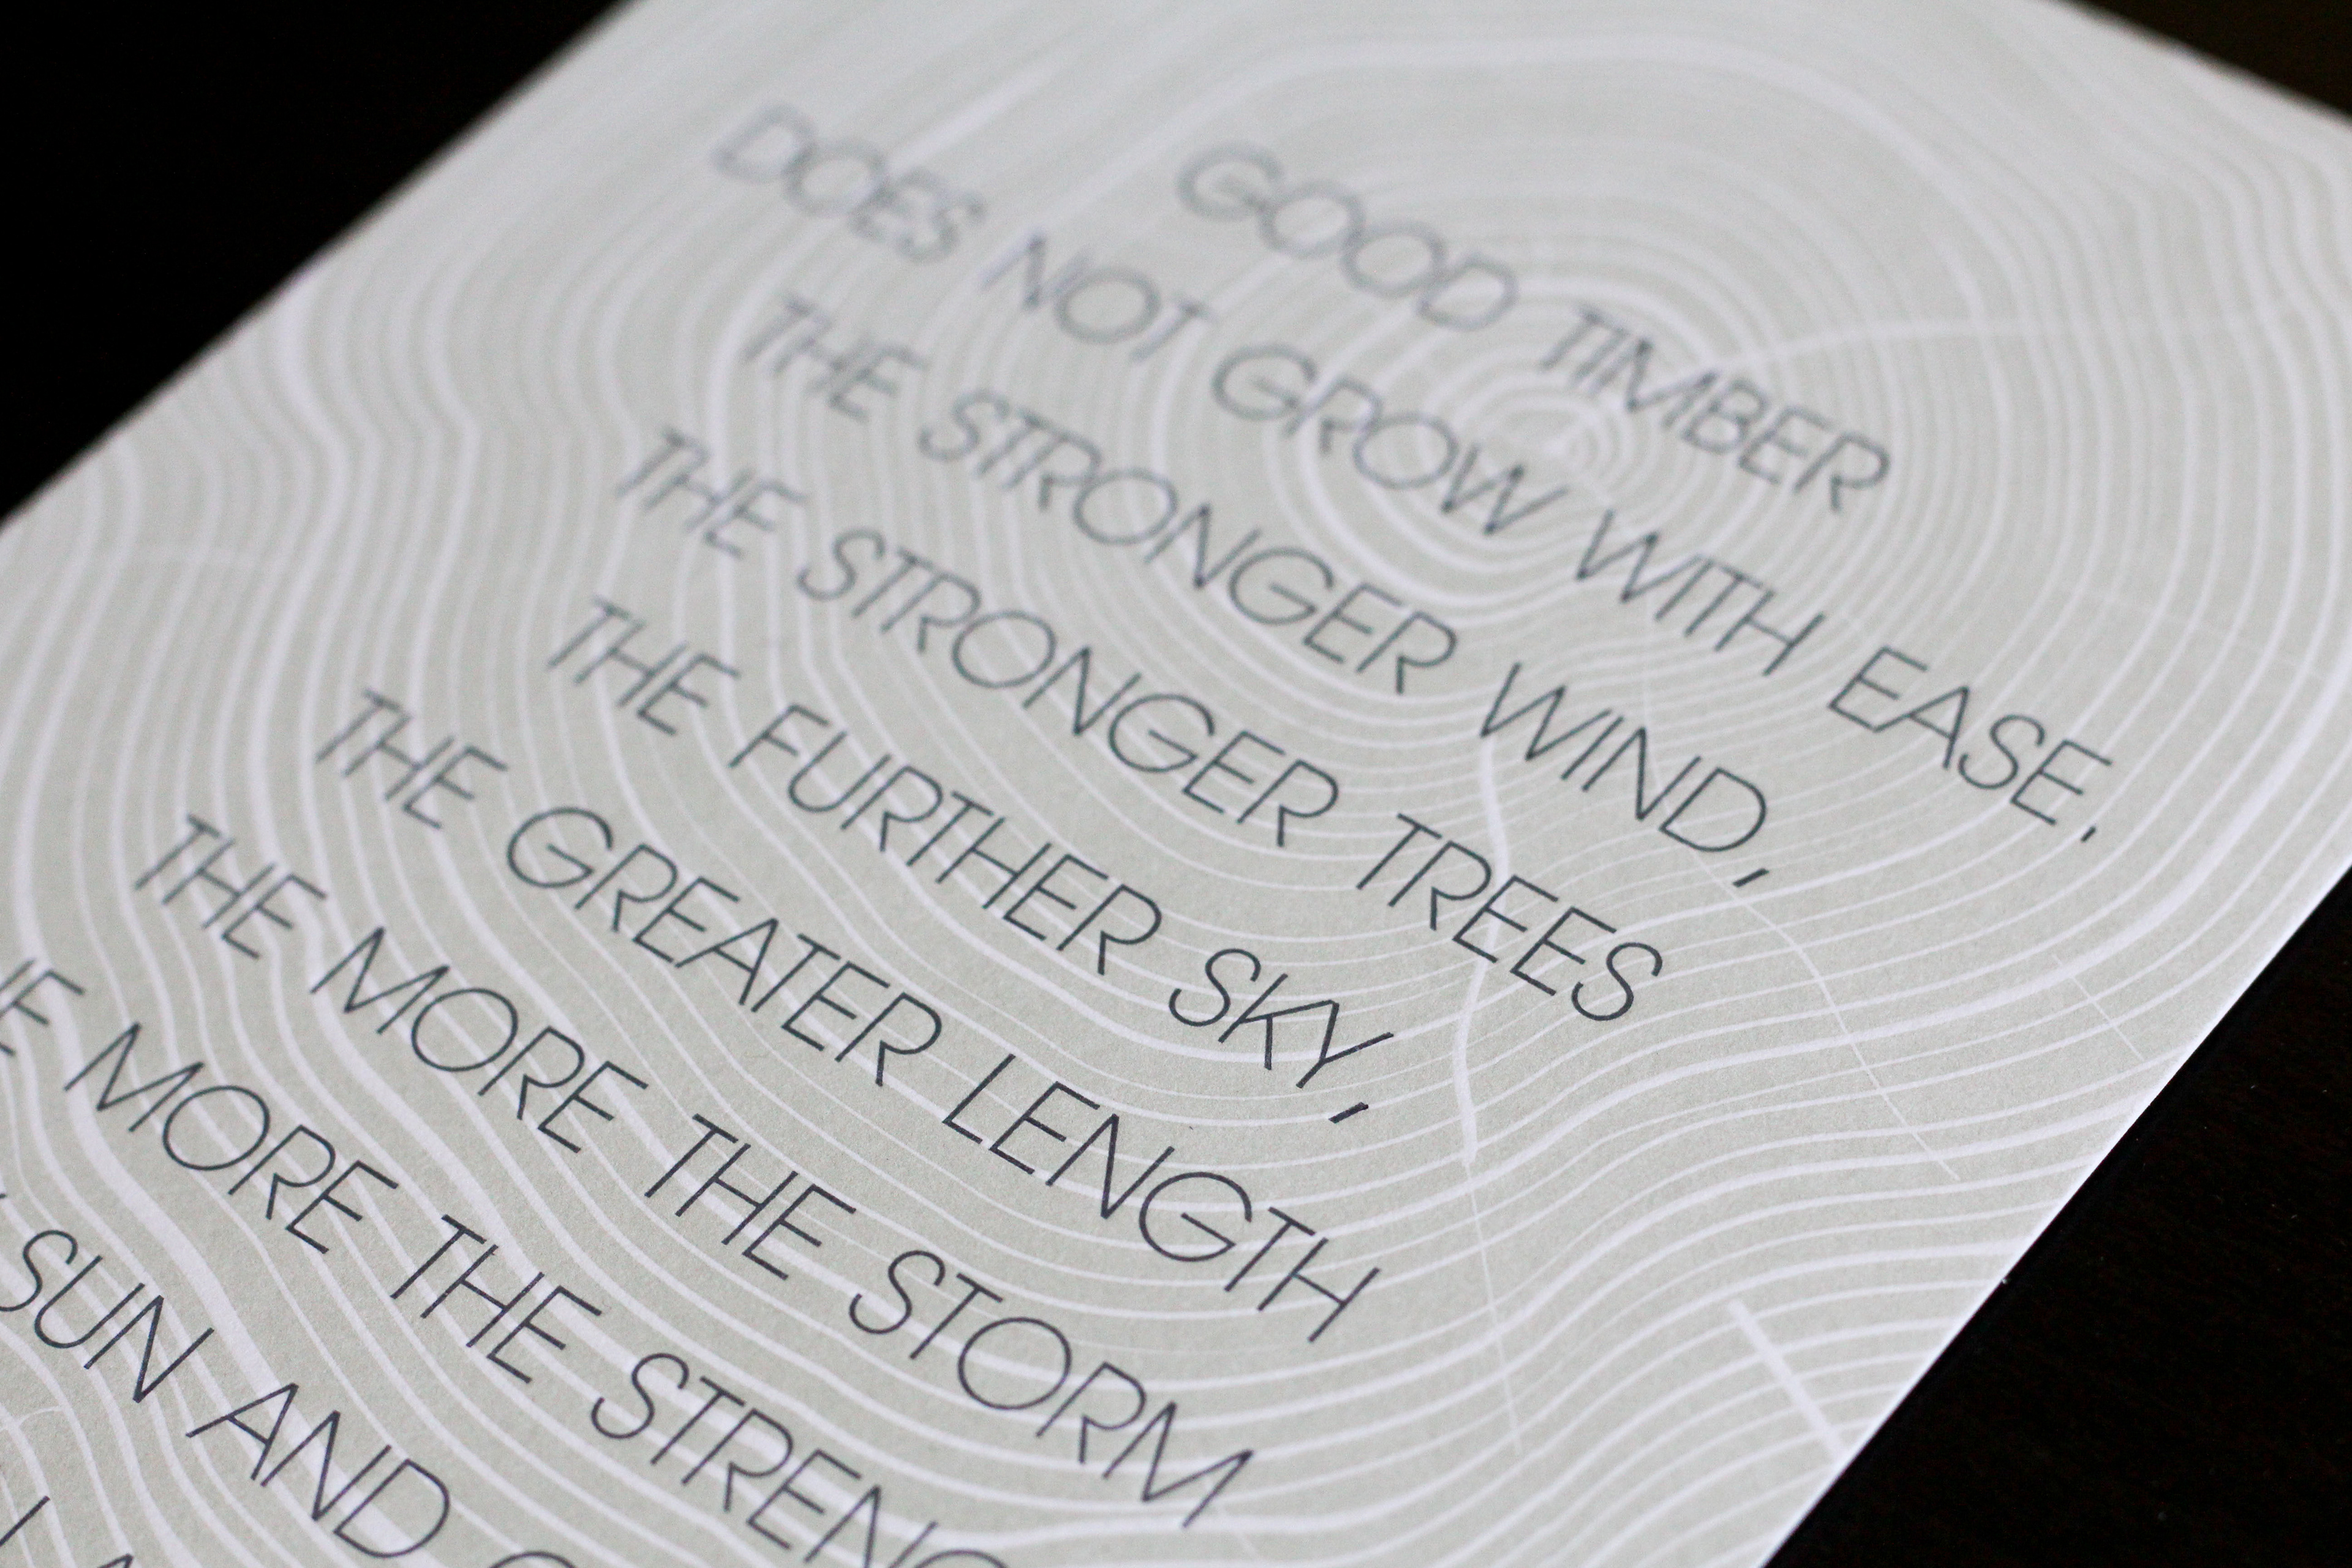 GOOD TIMBER
DOES NOT GROW WITH EASE.
THE STRONGER WIND,
THE STRONGER TREES
THE FURTHER SKY,
THE GREATER LENGTH
THE MORE THE STORM
MORE THE
SUN AND